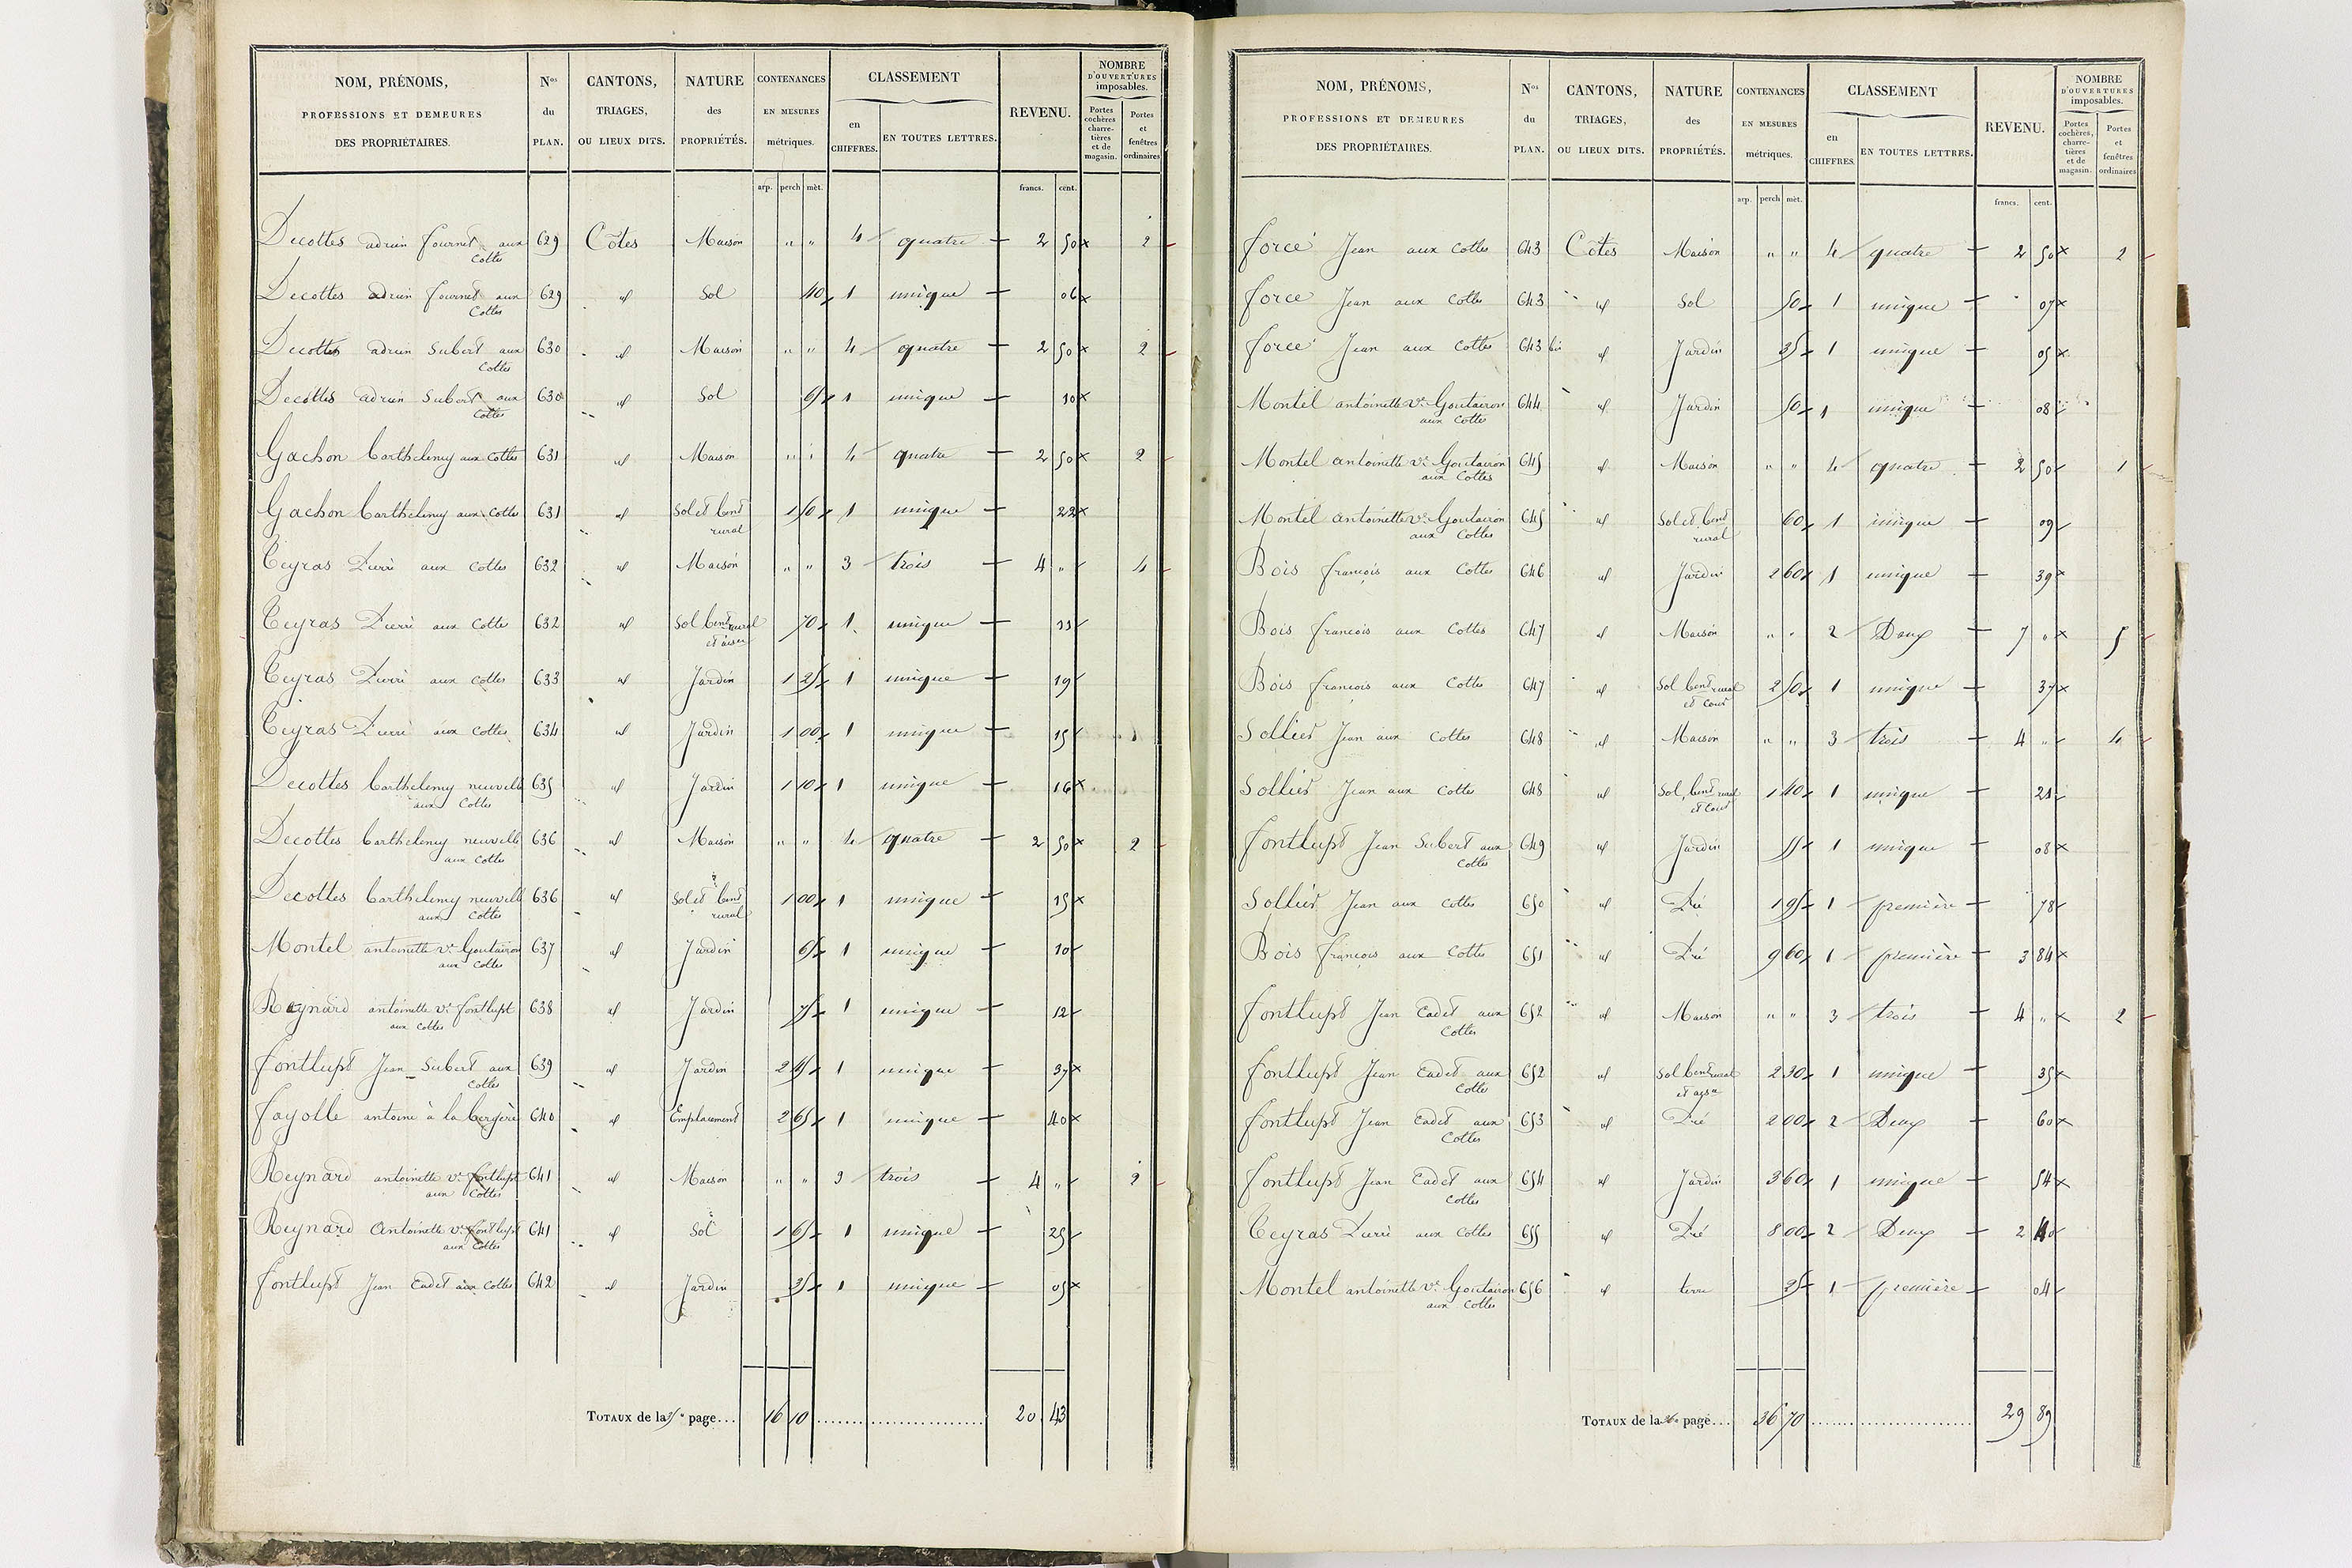 NOM, PRÉNOMS, PROFESSIONS ET DEMEURES DES PROPRIÉTAIRES. Nos du PLAN. CANTONS, TRIAGES, OU LIEUX DITS. NATURE des PROPRIÉTÉS. CONTENANCES EN MESURES métriques. CLASSEMENT en CHIFFRES. EN TOUTES LETTRES. REVENU. NOMBRE D'OUVERTURES imposables. Portes cochères charretières et de magasin. Portes et fenêtres ordinaires
arp. perch mèt. francs. cent.
Decottes adrien fournet aux Cottes 629 Côtes Maison " " 4 quatre 2 50 x 2
Decottes adrien fournet aux Cottes 629 id Sol 40 1 unique 06 x
Decottes adrien Subert aux Cottes 630 id Maison " " 4 quatre 2 50 x 2
Decottes adrien Subert aux Cottes 630 id Sol 65 1 unique 10 x
Gachon barthelemy aux Cottes 631 id Maison " " 4 quatre 2 50 x 2
Gachon barthelemy aux Cottes 631 id Sol et bent rural 1 50 1 unique 22 x
Teyras Pierre aux Cottes 632 id Maison " " 3 trois 4 " 4
Teyras Pierre aux Cottes 632 id Sol bent rural et aisa 70 1 unique 11
Teyras Pierre aux Cottes 633 id Jardin 1 25 1 unique 19
Teyras Pierre aux Cottes 634 id Jardin 1 00 1 unique 15
Decottes barthelemy neuville aux Cottes 635 id Jardin 1 10 1 unique 16 x
Decottes barthelemy neuville aux Cottes 636 id Maison " " 4 quatre 2 50 x 2
Decottes barthelemy neuville aux Cottes 636 id Sol et bent rural 1 00 1 unique 15 x
Montel antoinette ve Goutairon aux Cottes 637 id Jardin 65 1 unique 10
Reynard antoinette ve fontlupt aux Cottes 638 id Jardin 75 1 unique 12
fontlupt Jean Subert aux Cottes 639 id Jardin 2 45 1 unique 37 x
fayolle antoine à la bergère 640 id Emplacement 2 65 1 unique 40 x
Reynard antoinette ve fontlupt aux Cottes 641 id Maison " " 3 trois 4 " 2
Reynard Antoinette ve fontlupt aux Cottes 641 id Sol 1 65 1 unique 25
fontlupt Jean Cadet aux Cottes 642 id Jardin 35 1 unique 05 x
TOTAUX de la 35e page... 16 10 ........ 20 43
NOM, PRÉNOMS, PROFESSIONS ET DEMEURES DES PROPRIÉTAIRES. Nos du PLAN. CANTONS, TRIAGES, OU LIEUX DITS. NATURE des PROPRIÉTÉS. CONTENANCES EN MESURES métriques. CLASSEMENT en CHIFFRES EN TOUTES LETTRES. REVENU. NOMBRE D'OUVERTURES imposables. Portes cochères, charretières et de magasin. Portes et fenêtres ordinaires
arp. perch mèt. francs. cent.
force Jean aux Cottes 643 Côtes Maison " " 4 quatre 2 50 x 2
force Jean aux Cottes 643 id Sol 50 1 unique 07 x
force Jean aux Cottes 643 bis id Jardin 35 1 unique 05 x
Montel antoinette ve Goutairon aux Cottes 644 id Jardin 50 1 unique 08
Montel antoinette ve Goutairon aux Cottes 645 id Maison " " 4 quatre 2 50 1
Montel antoinette ve Goutairon aux Cottes 645 id Sol et bent rural 60 1 unique 09
Bois françois aux Cottes 646 id Jardin 2 60 1 unique 39 x
Bois francois aux Cottes 647 id Maison " " 2 Deux 7 " x 5
Bois francois aux Cottes 647 id Sol bent rural et cour 2 50 1 unique 37 x
Sollier Jean aux Cottes 648 id Maison " " 3 trois 4 " 4
Sollier Jean aux Cottes 648 id Sol, bent rural et cour 1 40 1 unique 21
fontlupt Jean Subert aux Cottes 649 id Jardin 55 1 unique 08 x
Sollier Jean aux Cottes 650 id Pré 1 95 1 première 78
Bois françois aux Cottes 651 id Pré 9 60 1 première 3 84 x
fontlupt Jean Cadet aux Cottes 652 id Maison " " 3 trois 4 " x 2
fontlupt Jean Cadet aux Cottes 652 id Sol bent rural et aysa 2 30 1 unique 35 x
fontlupt Jean Cadet aux Cottes 653 id Pré 2 00 2 Deux 60 x
fontlupt Jean Cadet aux Cottes 654 id Jardin 3 60 1 unique 54 x
Teyras Pierre aux Cottes 655 id Pré 8 00 2 Deux 2 40
Montel antoinette ve Goutairon aux Cottes 656 id terre 25 1 première 04
TOTAUX de la 36e page... 36 70 ........ 29 89